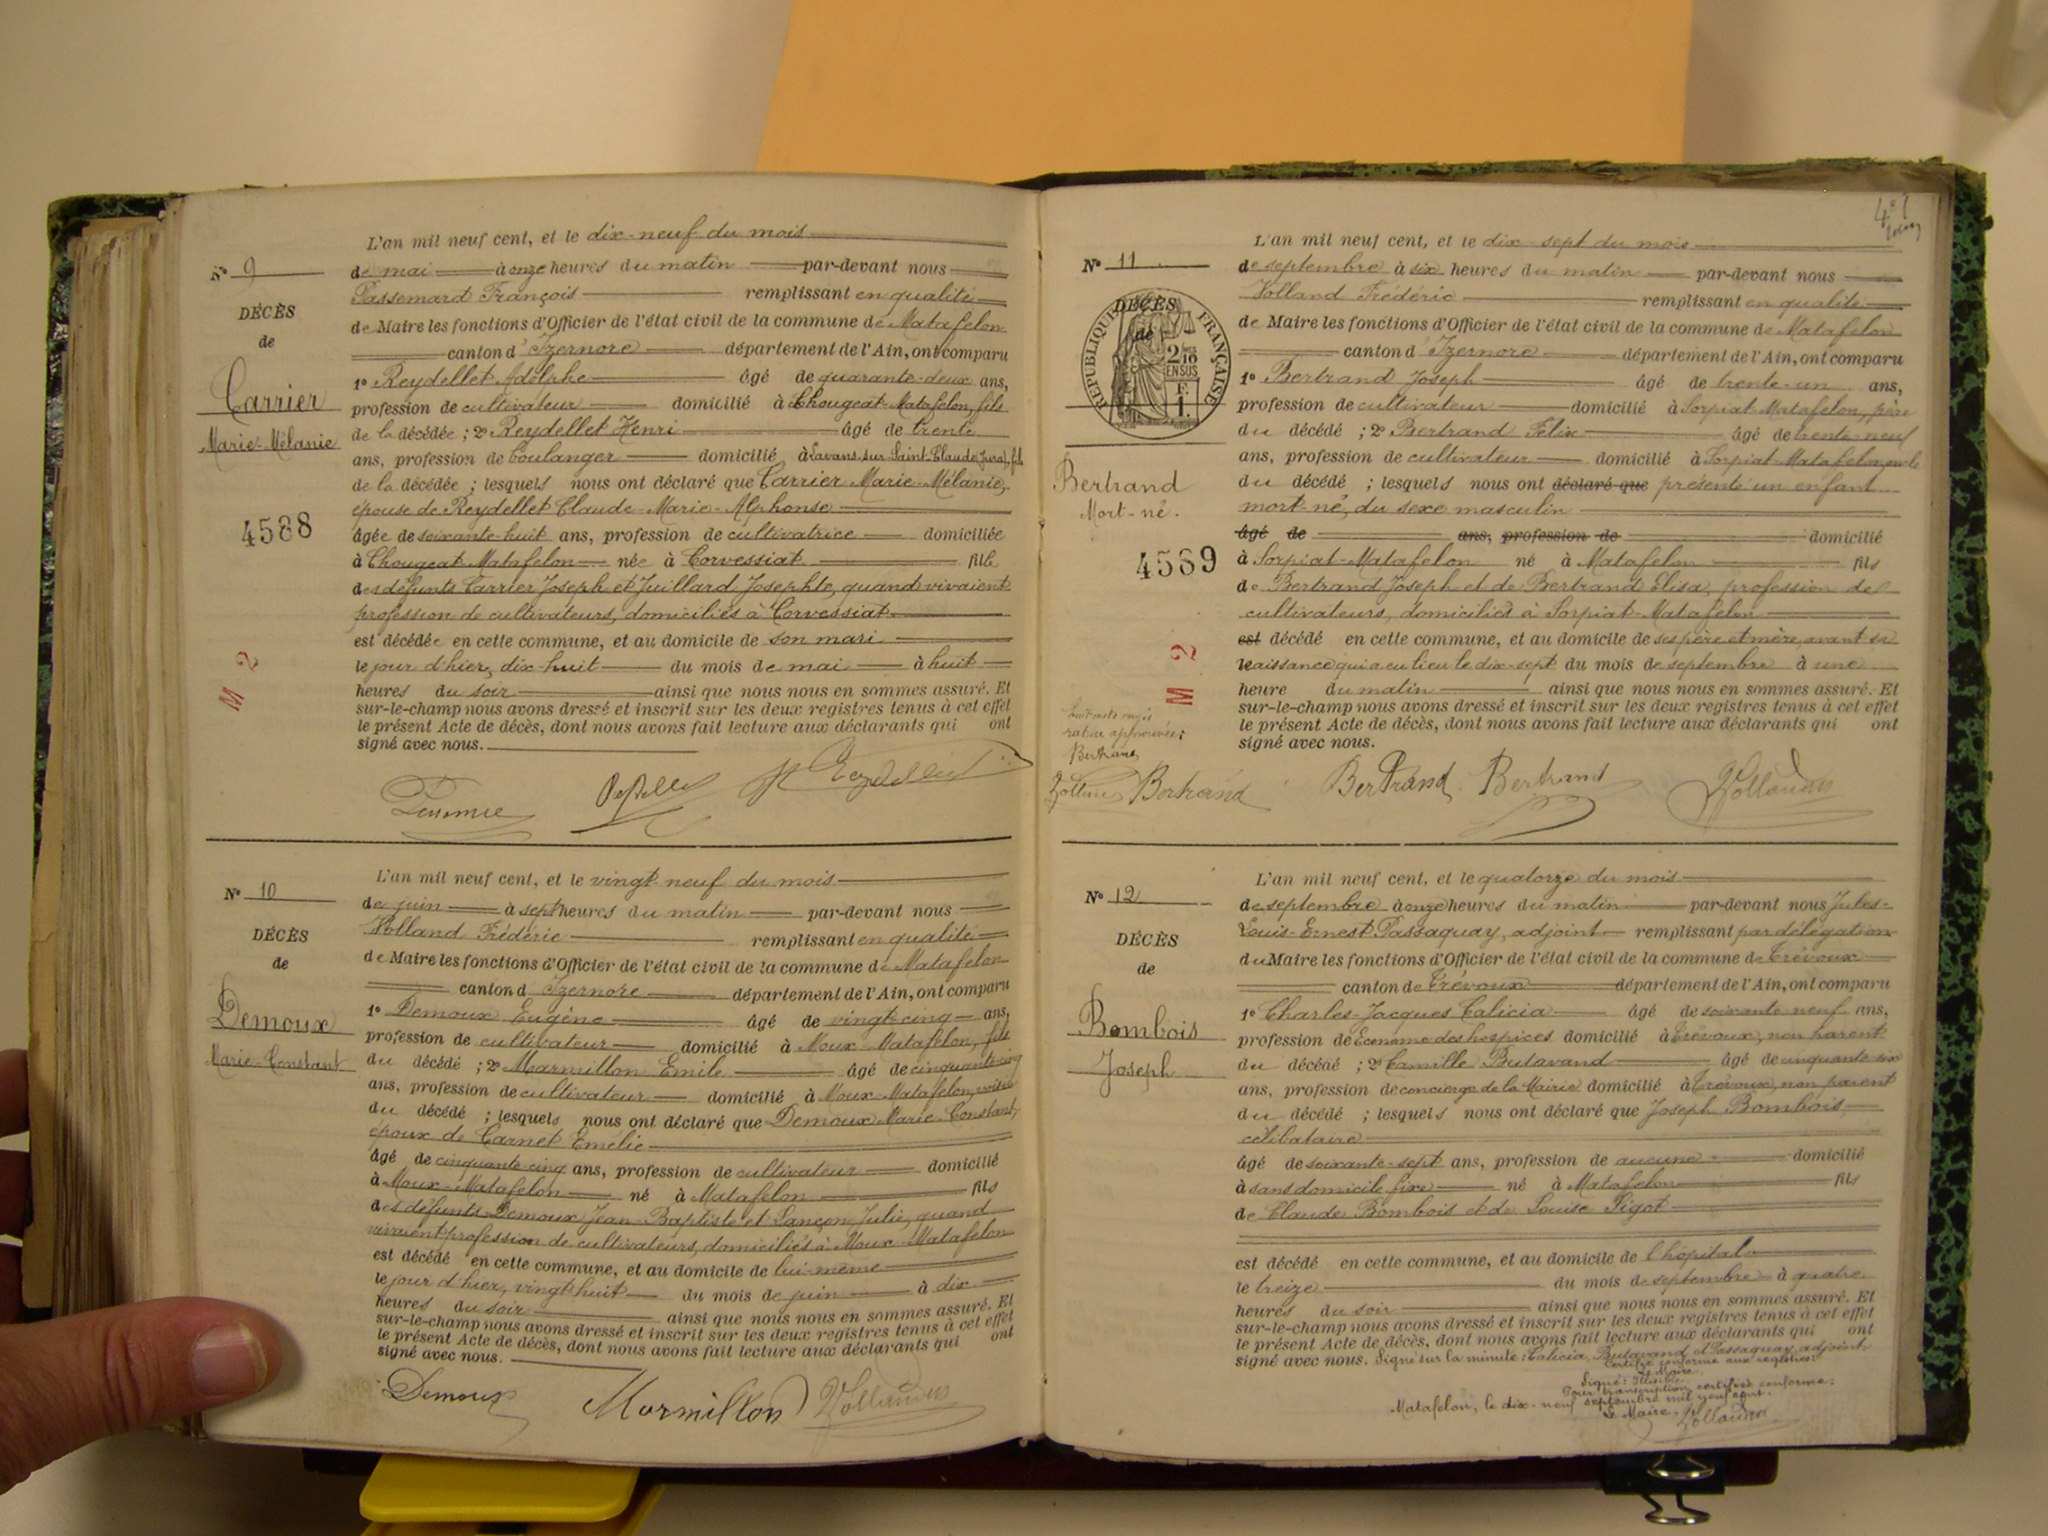 N° 9
DÉCÈS
de
Carrier
Marie-Mélanie
4588
M 2
L'an mil neuf cent, et le dix-neuf du mois
de mai à onze heures du matin par-devant nous
Passemard François remplissant en qualité
de Maire les fonctions d'Officier de l'état civil de la commune de Matafelon
canton d'Izernore département de l'Ain, ont comparu
1° Reydellet Adolphe âgé de quarante-deux ans,
profession de cultivateur domicilié à Chougeat-Matafelon, fils
de la décédée ; 2° Reydellet Henri âgé de trente
ans, profession de boulanger domicilié à Lavans-sur-Saint-Claude (Jura), fils
de la décédée ; lesquels nous ont déclaré que Carrier Marie-Mélanie,
épouse de Reydellet Claude-Marie-Alphonse
âgée de soixante-huit ans, profession de cultivatrice domiciliée
à Chougeat-Matafelon née à Corvessiat fille
des défunts Carrier Joseph et Juillard Josephte, quand vivaient
profession de cultivateurs, domiciliés à Corvessiat
est décédée en cette commune, et au domicile de son mari
le jour d'hier, dix-huit du mois de mai à huit
heures du soir ainsi que nous nous en sommes assuré. Et
sur-le-champ nous avons dressé et inscrit sur les deux registres tenus à cet effet
le présent Acte de décès, dont nous avons fait lecture aux déclarants qui ont
signé avec nous.
N° 10
DÉCÈS
de
Demoux
Marie-Constant
L'an mil neuf cent, et le vingt-neuf du mois
de juin à sept heures du matin par-devant nous
Volland Frédéric remplissant en qualité
de Maire les fonctions d'Officier de l'état civil de la commune de Matafelon
canton d'Izernore département de l'Ain, ont comparu
1° Demoux Eugène âgé de vingt-cinq ans,
profession de cultivateur domicilié à Moux-Matafelon, fils
du décédé ; 2° Marmillon Emile âgé de cinquante-cinq
ans, profession de cultivateur domicilié à Moux-Matafelon, voisin
du décédé ; lesquels nous ont déclaré que Demoux Marie-Constant,
époux de Carnet Emélie
âgé de cinquante-cinq ans, profession de cultivateur domicilié
à Moux-Matafelon né à Matafelon fils
des défunts Demoux Jean-Baptiste et Lançon Julie, quand
vivaient profession de cultivateurs, domiciliés à Moux-Matafelon
est décédé en cette commune, et au domicile de lui-même
le jour d'hier, vingt-huit du mois de juin à dix
heures du soir ainsi que nous nous en sommes assuré. Et
sur-le-champ nous avons dressé et inscrit sur les deux registres tenus à cet effet
le présent Acte de décès, dont nous avons fait lecture aux déclarants qui ont
signé avec nous.
Demoux Marmillon Vollandus
N° 11
DÉCÈS
de
RÉPUBLIQUE FRANÇAISE
Bertrand
Mort-né.
4589
M 2
Bertrand
L'an mil neuf cent, et le dix-sept du mois
de septembre à six heures du matin par-devant nous
Volland Frédéric remplissant en qualité
de Maire les fonctions d'Officier de l'état civil de la commune de Matafelon
canton d'Izernore département de l'Ain, ont comparu
1° Bertrand Joseph âgé de trente-un ans,
profession de cultivateur domicilié à Sorpiat-Matafelon, père
du décédé ; 2° Bertrand Félix âgé de trente-neuf
ans, profession de cultivateur domicilié à Sorpiat-Matafelon, oncle
du décédé ; lesquels nous ont déclaré que présenté un enfant
mort-né, du sexe masculin
âgé de ans, profession de domicilié
à Sorpiat-Matafelon né à Matafelon fils
de Bertrand Joseph et de Bertrand Elisa, profession de
cultivateurs, domiciliés à Sorpiat-Matafelon
est décédé en cette commune, et au domicile de ses père et mère, avant sa
naissance qui a eu lieu le dix-sept du mois de septembre à une
heure du matin ainsi que nous nous en sommes assuré. Et
sur-le-champ nous avons dressé et inscrit sur les deux registres tenus à cet effet
le présent Acte de décès, dont nous avons fait lecture aux déclarants qui ont
signé avec nous.
Bertrand Bertrand Bertrand Vollandus
N° 12
DÉCÈS
de
Bombois
Joseph
L'an mil neuf cent, et le quatorze du mois
de septembre à onze heures du matin par-devant nous Jules-
Louis-Ernest Passaquay, adjoint remplissant par délégation
du Maire les fonctions d'Officier de l'état civil de la commune de Trévoux
canton de Trévoux département de l'Ain, ont comparu
1° Charles-Jacques Calicia âgé de soixante-neuf ans,
profession de Econome des hospices domicilié à Trévoux, non parent
du décédé ; 2° Camille Butavand âgé de cinquante-six
ans, profession de concierge de la Mairie domicilié à Trévoux, non parent
du décédé ; lesquels nous ont déclaré que Joseph Bombois,
célibataire
âgé de soixante-sept ans, profession de aucune domicilié
à sans domicile fixe né à Matafelon fils
de Claude Bombois et de Louise Pigot
est décédé en cette commune, et au domicile de l'hôpital
le treize du mois de septembre à quatre
heures du soir ainsi que nous nous en sommes assuré. Et
sur-le-champ nous avons dressé et inscrit sur les deux registres tenus à cet effet
le présent Acte de décès, dont nous avons fait lecture aux déclarants qui ont
signé avec nous. Signé sur la minute : Calicia, Butavand et Passaquay, adjoint
Certifié conforme aux registres
Le Maire,
Signé : Illisible.
Pour transcription certifiée conforme :
Matafelon, le dix-neuf septembre mil neuf cent.
Le Maire, Vollandus